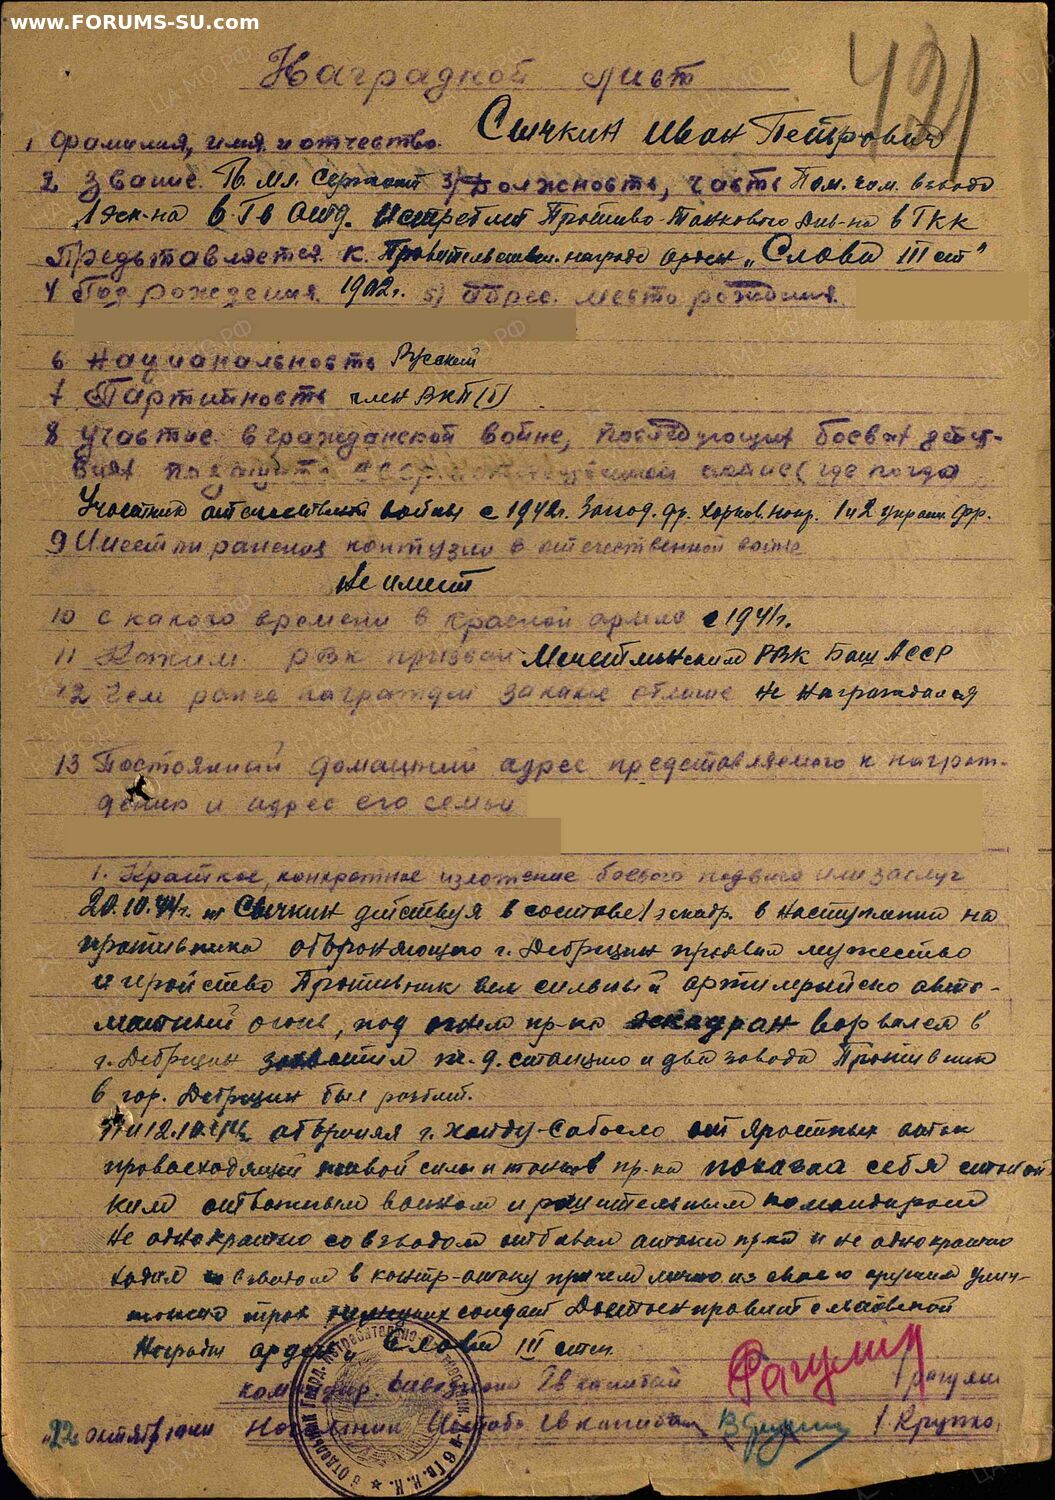 www.FORUMS-SU.com
421
Наградной лист
1 Фамилия, имя и отчество. Сычкин Иван Петрович
2 Звание. Гв. мл. Сержант 3) Должность, часть Пом. ком. взвода
1 эск-на 6 Гв Отд. Истребит Противо-Танкового Див-на 6 ГКК
Представляется к. Правительствен. награде орден „Слава III ст"
4 Год рождения 1902 г. 5) место рождения
6 Национальность Русский
7 Партийность член ВКП(б)
8 Участие в гражданской войне, последующих боевых дейст-
виях по защите СССР (где когда
Участник отечественной войны с 1942 г. Запод. фр. Харьк. напр. 1 и 2 украин. фр.
9 Имеет ли ранения контузии в отечественной войне
Не имеет
10 с какого времени в красной армии с 1941 г.
11 Каким РВК призван РВК Баш АССР
12 Чем ранее награжден за какие отличия не награждался
13 Постоянный домашний адрес представляемого к награж-
дению и адрес его семьи
1. Краткое, конкретное изложение боевого подвига или заслуг
20.10.44 г. Сычкин действуя в составе 1 эскадр. в наступлении на
противника обороняющего г. Дебрецин проявил мужество
и геройство Противник вел сильный артиллерийско авто-
матный огонь, под огнем пр-ка эскадрон ворвался в
г. Дебрецин захватил ж.д. станцию и два завода Противник
в гор. Дебрецин был разбит.
11 и 12.10.44 обороняя г. Хайду-Собосло от яростных атак
превосходящей живой силы и танков пр-ка показал себя стой
ким отважным воином и решительным командиром
Не однократно со взводом отбивал атаки пр-ка и не однократно
ходил со взводом в контр-атаку причем лично из своего оружия унич-
тожил трех немецких солдат Достоин правительственной
Награды орден „Слава III степ.
командир дивизиона Гв капитан Рагулин
22 октября 1944 Начальник Штаба Гв капитан